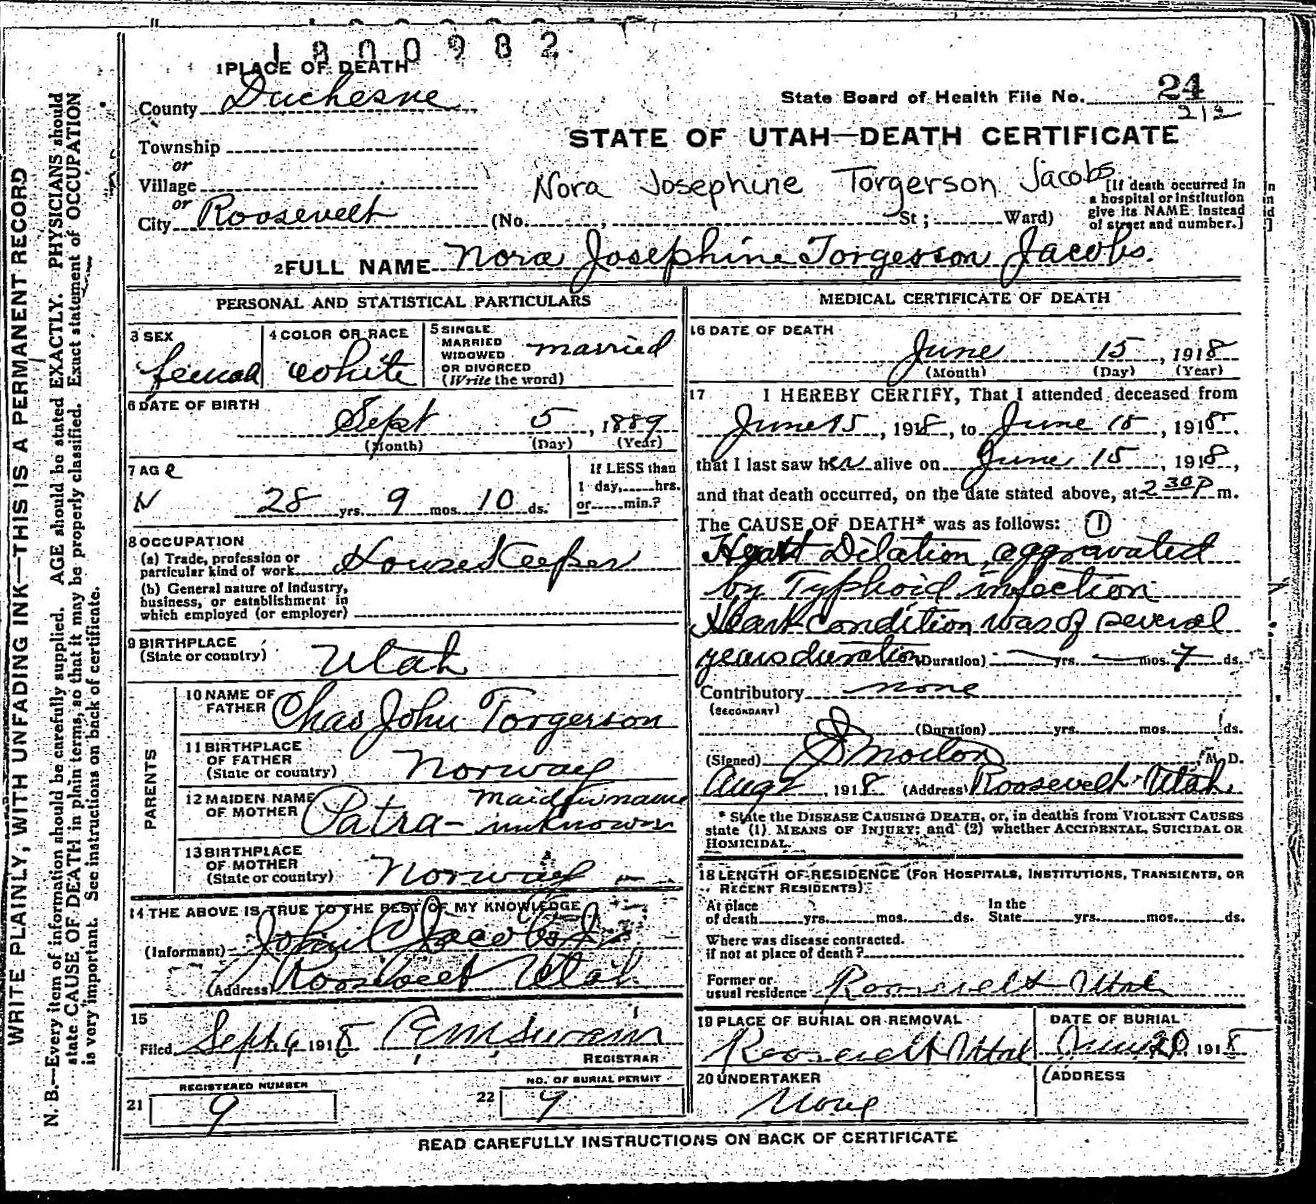 1800982
1 PLACE OF DEATH
County Duchesne
State Board of Health File No. 24
212
STATE OF UTAH—DEATH CERTIFICATE
Township
or
Village
or
City Roosevelt
Nora Josephine Torgerson Jacobs
(No. St; Ward)
[If death occurred in
a hospital or institution
give its NAME instead
of street and number.]
2 FULL NAME Nora Josephine Torgerson Jacobs.
PERSONAL AND STATISTICAL PARTICULARS
3 SEX
femal
4 COLOR OR RACE
white
5 SINGLE
MARRIED
WIDOWED
OR DIVORCED
(Write the word)
married
6 DATE OF BIRTH
Sept 5, 1889
(Month) (Day) (Year)
7 AGe
N 28 yrs. 9 mos. 10 ds.
If LESS than
1 day, hrs.
or min.?
8 OCCUPATION
(a) Trade, profession or
particular kind of work House Keeper
(b) General nature of industry,
business, or establishment in
which employed (or employer)
9 BIRTHPLACE
(State or country)
Utah
PARENTS
10 NAME OF
FATHER
Chas John Torgerson
11 BIRTHPLACE
OF FATHER
(State or country)
Norway
12 MAIDEN NAME
OF MOTHER
Patra - maiden name
unknown
13 BIRTHPLACE
OF MOTHER
(State or country)
Norway
14 THE ABOVE IS TRUE TO THE BEST OF MY KNOWLEDGE
(Informant) John C Jacobs Jr
(Address) Roosevelt Utah
15
Filed Sept. 6 1918 Swain
REGISTRAR
REGISTERED NUMBER
21 9
NO. OF BURIAL PERMIT
22 9
MEDICAL CERTIFICATE OF DEATH
16 DATE OF DEATH
June 15, 1918
(Month) (Day) (Year)
17 I HEREBY CERTIFY, That I attended deceased from
June 15, 1918, to June 15, 1918.
that I last saw her alive on June 15, 1918,
and that death occurred, on the date stated above, at 2 30 P m.
The CAUSE OF DEATH* was as follows: (1)
Heart Dilation, aggravated
by Typhoid infection
Heart condition was of several
years duration (Duration) yrs. mos. 7 ds.
Contributory none
(SECONDARY)
(Duration) yrs. mos. ds.
(Signed) Morton M. D.
Aug 2 1918 (Address) Roosevelt Utah.
* State the DISEASE CAUSING DEATH, or, in deaths from VIOLENT CAUSES
state (1) MEANS OF INJURY; and (2) whether ACCIDENTAL, SUICIDAL OR
HOMICIDAL.
18 LENGTH OF RESIDENCE (FOR HOSPITALS, INSTITUTIONS, TRANSIENTS, OR
RECENT RESIDENTS)
At place
of death yrs. mos. ds.
In the
State yrs. mos. ds.
Where was disease contracted.
if not at place of death?
Former or
usual residence Roosevelt Utah
19 PLACE OF BURIAL OR REMOVAL
Roosevelt Utah
DATE OF BURIAL
June 20, 1918
20 UNDERTAKER
None
ADDRESS
READ CAREFULLY INSTRUCTIONS ON BACK OF CERTIFICATE
WRITE PLAINLY, WITH UNFADING INK—THIS IS A PERMANENT RECORD
N. B.—Every item of information should be carefully supplied. AGE should be stated EXACTLY. PHYSICIANS should
state CAUSE OF DEATH in plain terms, so that it may be properly classified. Exact statement of OCCUPATION
is very important. See instructions on back of certificate.